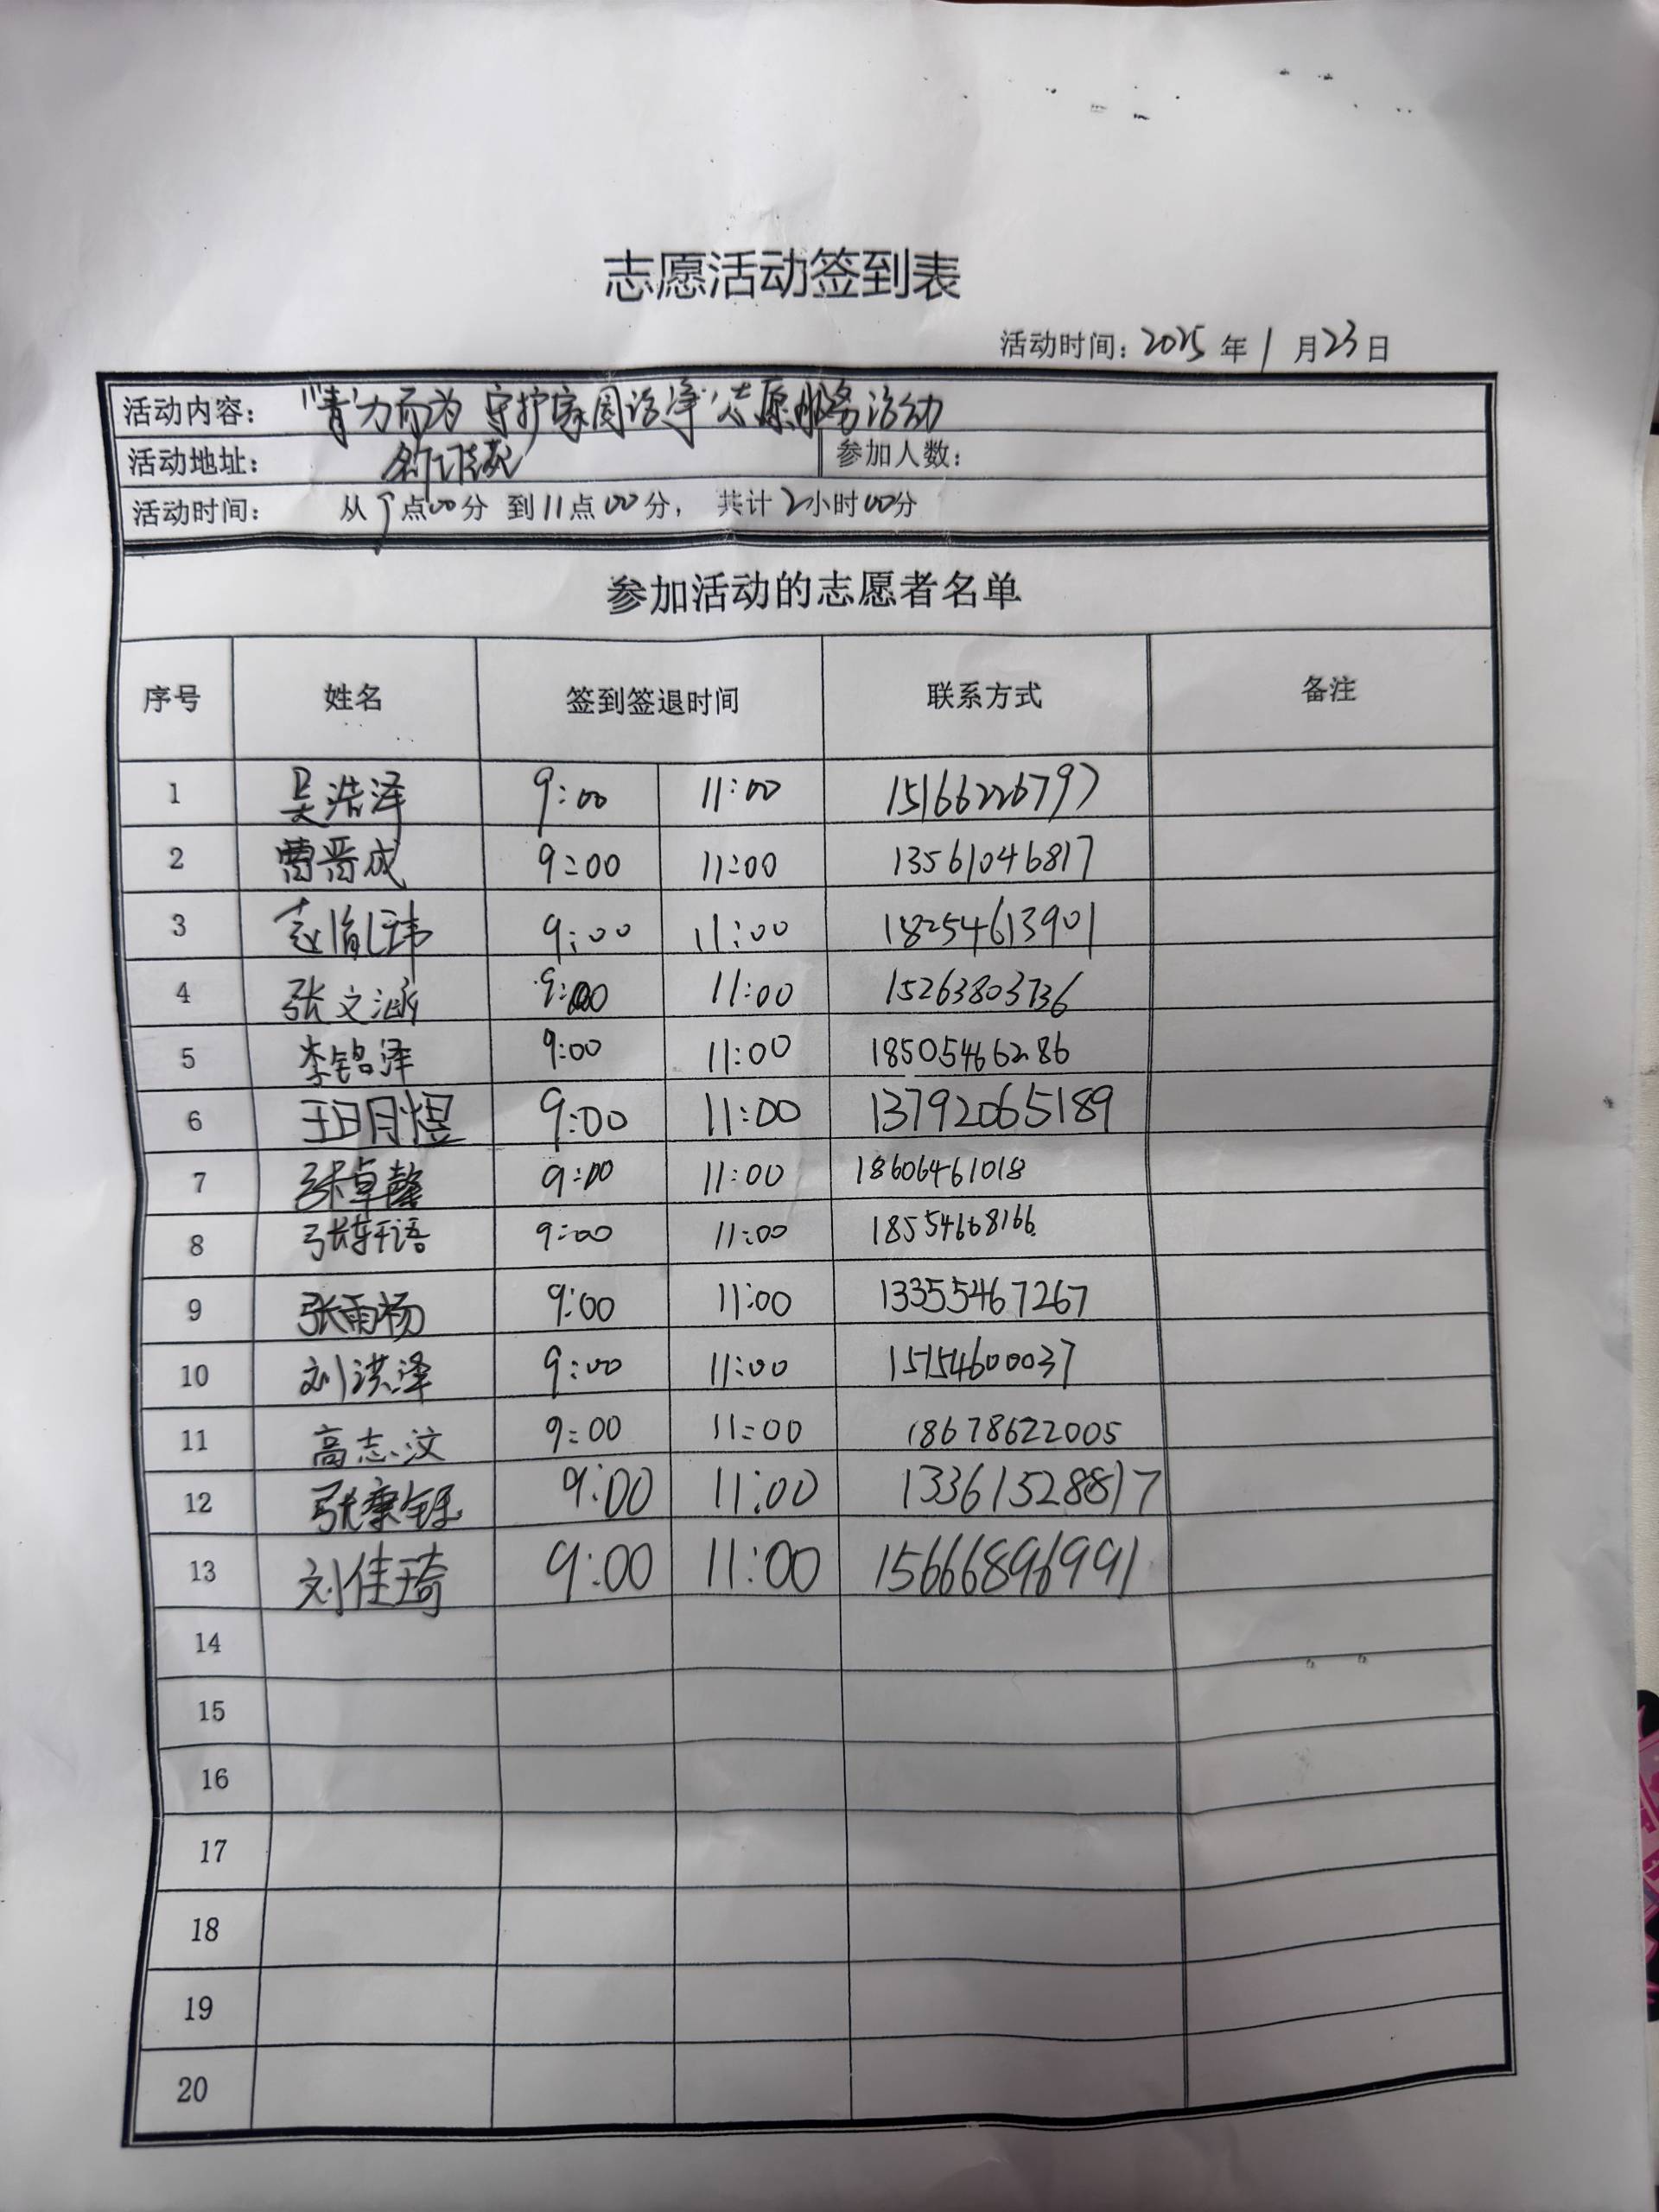 志愿活动签到表
活动时间：2025年1月23日
活动内容： “青”力而为 守护家园洁净”志愿服务活动
活动地址：
参加人数：
活动时间： 从9点00分 到11点00分， 共计2小时00分
参加活动的志愿者名单
序号 姓名 签到签退时间 联系方式 备注
1 吴浩泽 9:00 11:00 15166226797
2 曹晋成 9:00 11:00 13561046817
3 赵胤玮 9:00 11:00 18254613901
4 张文涵 9:00 11:00 15263803736
5 李铭泽 9:00 11:00 18505466286
6 王玥煜 9:00 11:00 13792065189
7 张卓馨 9:00 11:00 18606461018
8 张轩语 9:00 11:00 18554668166
9 张雨杨 9:00 11:00 13355467267
10 刘洪泽 9:00 11:00 15154600037
11 高志汶 9:00 11:00 18678622005
12 张康铄 9:00 11:00 13361528817
13 刘佳琦 9:00 11:00 15666896991
14
15
16
17
18
19
20